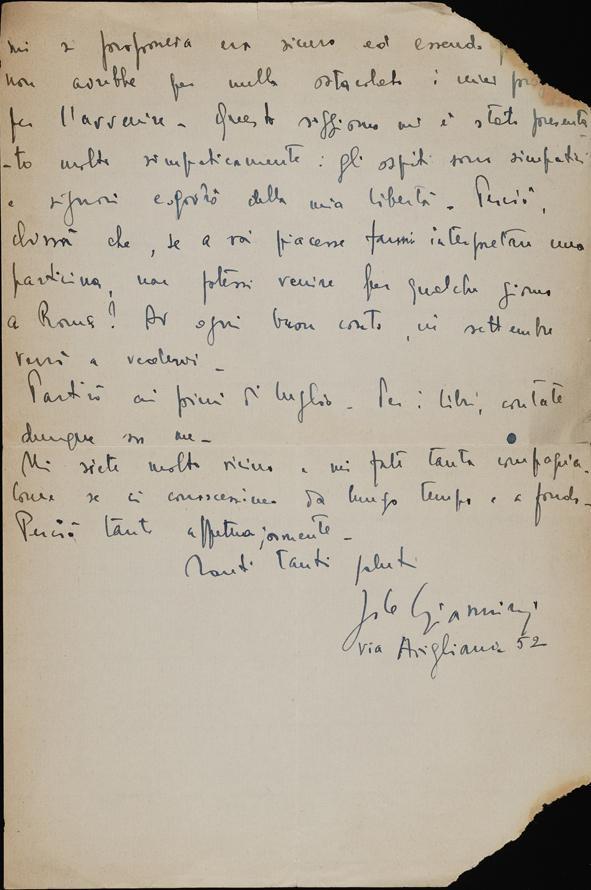 mi si proponeva era sicuro ed essendo
non avrebbe per nulla ostacolato i miei
per l'avvenire - Questo soggiorno mi è stato presenta
-to molto simpaticamente : gli ospiti sono simpatici
e signori e godrò della mia libertà - Perciò,
chissà che, se a voi piacesse farmi interpretare una
particina, non potessi venire per qualche giorno
a Roma? Ad ogni buon conto, in settembre
verrò a vedervi -
Partirò ai primi di luglio - Per i libri, contate
dunque su me -
Mi siete molto vicino e mi fate tanta compagnia -
Come se ci conoscessimo da lungo tempo e a fondo -
Perciò tante affettuosamente -
Tanti tanti saluti
Giannini
via Avigliana 52